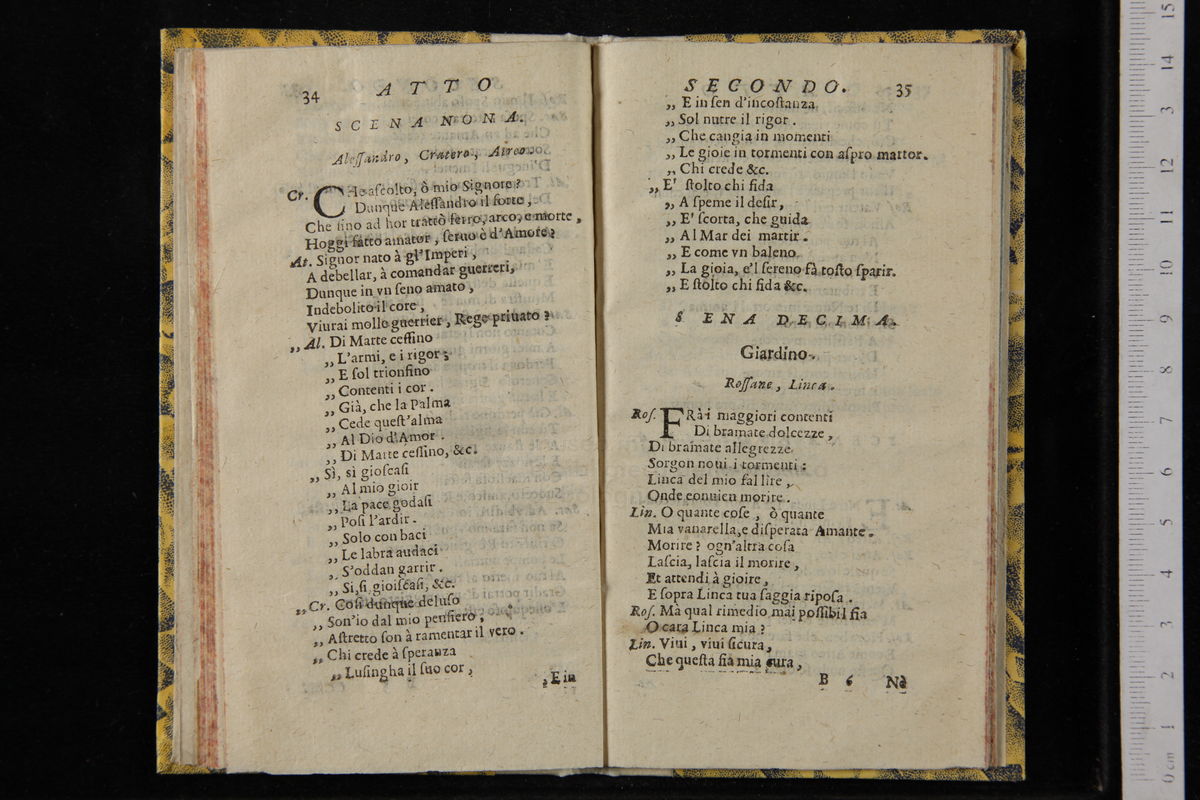 34 ATTO
SCENA NONA.
Aleſſandro, Cratero, Atreo.
Cr. CHe aſcolto, ò mio Signore?
Dunque Aleſſandro il forte,
Che ſino ad hor trattò ferro, arco, e morte,
Hoggi fatto amator, ſeruo è d'Amore?
At. Signor nato à gl'Imperi,
A debellar, à comandar guerreri,
Dunque in vn ſeno amato,
Indebolito il core,
Viurai molle guerrier, Rege priuato?
,, Al. Di Marte ceſſino
,, L'armi, e i rigor;
,, E ſol trionfino
,, Contenti i cor.
,, Già, che la Palma
,, Cede queſt'alma
,, Al Dio d'Amor.
,, Di Marte ceſſino, &c.
,, Sì, sì gioſcaſi
,, Al mio gioir
,, La pace godaſi
,, Poſi l'ardir.
,, Solo con baci
,, Le labra audaci
,, S'oddan garrir.
,, Si, ſi gioiſcaſi, &c.
,, Cr. Coſi dunque deluſo
,, Son'io dal mio penſiero,
,, Aſtretto ſon à ramentar il vero.
,, Chi crede à ſperanza
,, Luſingha il ſuo cor,
,, E in
SECONDO. 35
,, E in ſen d'incoſtanza
,, Sol nutre il rigor.
,, Che cangia in momenti
,, Le gioie in tormenti con aſpro martor.
,, Chi crede &c.
,, E' ſtolto chi fida
,, A ſpeme il deſir,
,, E' ſcorta, che guida
,, Al Mar dei martir.
,, E come vn baleno
,, La gioia, e'l ſereno fà toſto ſparir.
,, E ſtolto chi fida &c.
S ENA DECIMA.
Giardino.
Roſſane, Linca.
Roſ. FRà i maggiori contenti
Di bramate dolcezze,
Di bramate allegrezze
Sorgon noui i tormenti:
Linca del mio fallire,
Onde conuien morire.
Lin. O quante coſe, ò quante
Mia vanarella, e diſperata Amante.
Morire? ogn'altra coſa
Laſcia, laſcia il morire,
Et attendi à gioire,
E ſopra Linca tua ſaggia ripoſa.
Roſ. Mà qual rimedio mai poſſibil fia
O cara Linca mia?
Lin. Viui, viui ſicura,
Che queſta ſia mia cura,
B 6 Nè